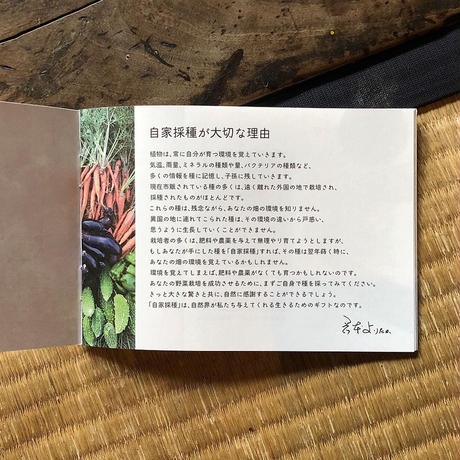 自家採種が大切な理由
植物は、常に自分が育つ環境を覚えていきます。
気温、雨量、ミネラルの種類や量、バクテリアの種類など、
多くの情報を種に記憶し、子孫に残していきます。
現在市販されている種の多くは、遠く離れた外国の地で栽培され、
採種されたものがほとんどです。
これらの種は、残念ながら、あなたの畑の環境を知りません。
異国の地に連れてこられた種は、その環境の違いから戸惑い、
思うように生長していくことができません。
栽培者の多くは、肥料や農薬を与えて無理やり育てようとしますが、
もしあなたが手にした種を「自家採種」すれば、その種は翌年蒔く時に、
あなたの畑の環境を覚えているかもしれません。
環境を覚えてしまえば、肥料や農薬がなくても育つかもしれないのです。
あなたの野菜栽培を成功させるために、まずご自身で種を採ってみてください。
きっと大きな驚きと共に、自然に感謝することができるでしょう。
「自家採種」は、自然界が私たちへ与えてくれる生きるためのギフトなのです。